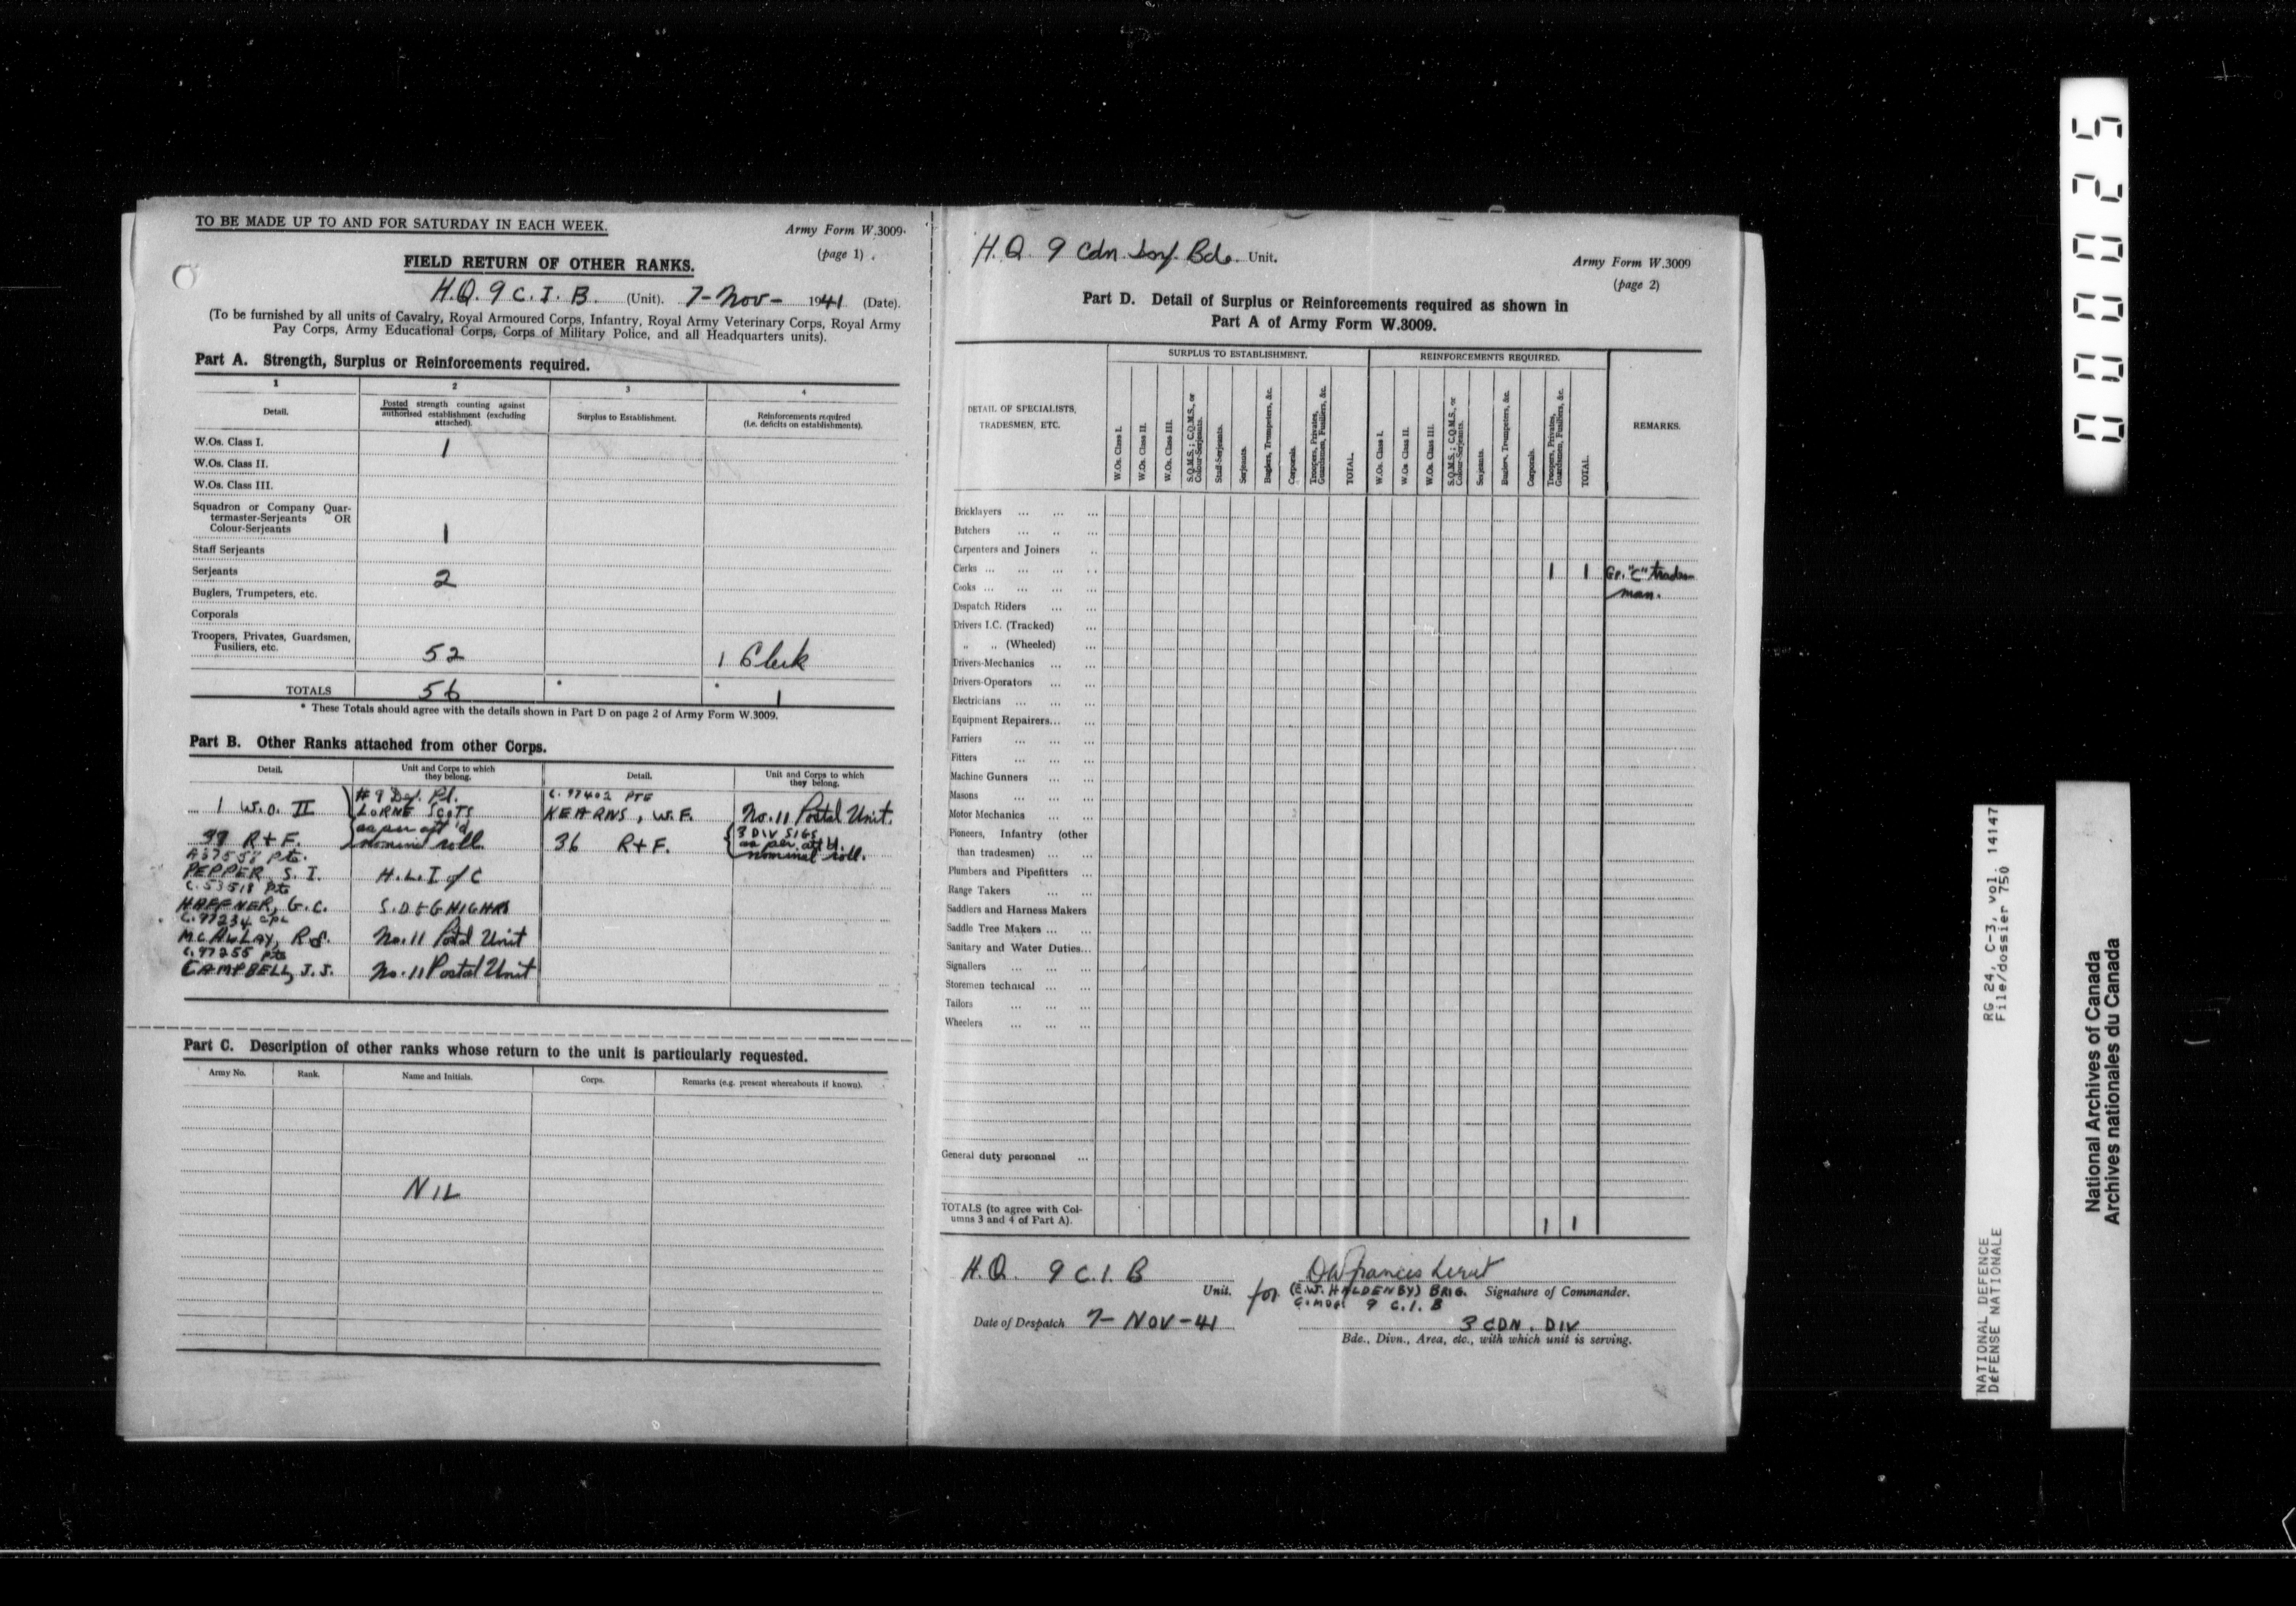 TO BE MADE UP TO AND FOR SATURDAY IN EACH WEEK.
Army Form W.3009.
(page 1)
FIELD RETURN OF OTHER RANKS.
H.Q. 9 C.I.B. (Unit). 7-Nov- 1941 (Date).
(To be furnished by all units of Cavalry, Royal Armoured Corps, Infantry, Royal Army Veterinary Corps, Royal Army
Pay Corps, Army Educational Corps, Corps of Military Police, and all Headquarters units).
Part A. Strength, Surplus or Reinforcements required.
1 2 3 4
Detail.
Posted strength counting against
authorised establishment (excluding
attached).
Surplus to Establishment.
Reinforcements required
(i.e. deficits on establishments).
W.Os. Class I. 1
W.Os. Class II.
W.Os. Class III.
Squadron or Company Quar-
termaster-Serjeants OR
Colour-Serjeants 1
Staff Serjeants
Serjeants 2
Buglers, Trumpeters, etc.
Corporals
Troopers, Privates, Guardsmen,
Fusiliers, etc. 52 1 Clerk
TOTALS 56 * * 1
* These Totals should agree with the details shown in Part D on page 2 of Army Form W.3009.
Part B. Other Ranks attached from other Corps.
Detail.
Unit and Corps to which
they belong.
Detail.
Unit and Corps to which
they belong.
1 W.O. II
#9 Def. Pl.
LORNE SCOTS
as per att'd
nominal roll.
R+F.
Pte.
PEPPER S. I. H.L.I of C
C.53518 Pte
HAFFNER, G.C. S.D & G HIGHRS
C.97234 Cpl
McAULAY, R.S. No. 11 Postal Unit
C.97255 Pte
CAMPBELL, J.J. No. 11 Postal Unit
C.97402 PTE
KEARNS, W.F. No. 11 Postal Unit.
36 R+F.
3 DIV SIGS
as per att'd
nominal roll.
Part C. Description of other ranks whose return to the unit is particularly requested.
Army No. Rank. Name and Initials. Corps. Remarks (e.g. present whereabouts if known).
NIL
H.Q. 9 Cdn. Inf. Bde. Unit.
Army Form W.3009
(page 2)
Part D. Detail of Surplus or Reinforcements required as shown in
Part A of Army Form W.3009.
DETAIL OF SPECIALISTS,
TRADESMEN, ETC.
SURPLUS TO ESTABLISHMENT.
W.Os. Class I.
W.Os. Class II.
W.Os. Class III.
S.Q.M.S.; C.Q.M.S., or
Colour-Serjeants.
Staff-Serjeants.
Serjeants.
Buglers, Trumpeters, &c.
Corporals.
Troopers, Privates,
Guardsmen, Fusiliers, &c.
TOTAL.
REINFORCEMENTS REQUIRED.
W.Os. Class I.
W.Os. Class II.
W.Os. Class III.
S.Q.M.S.; C.Q.M.S., or
Colour-Serjeants.
Serjeants.
Buglers, Trumpeters, &c.
Corporals.
Troopers, Privates,
Guardsmen, Fusiliers, &c.
TOTAL.
REMARKS.
Bricklayers ... ... ...
Butchers ... ... ...
Carpenters and Joiners ...
Clerks ... ... ... ... 1 1 Gr. "C" trades-
man.
Cooks ... ... ... ...
Despatch Riders ... ...
Drivers I.C. (Tracked) ...
" " (Wheeled) ...
Drivers-Mechanics ... ...
Drivers-Operators ... ...
Electricians ... ... ...
Equipment Repairers... ...
Farriers ... ... ...
Fitters ... ... ...
Machine Gunners ... ...
Masons ... ... ...
Motor Mechanics ... ...
Pioneers, Infantry (other
than tradesmen) ... ...
Plumbers and Pipefitters ...
Range Takers ... ...
Saddlers and Harness Makers
Saddle Tree Makers ... ...
Sanitary and Water Duties...
Signallers ... ... ...
Storemen technical ... ...
Tailors ... ... ...
Wheelers ... ... ...
General duty personnel ...
TOTALS (to agree with Col-
umns 3 and 4 of Part A). 1 1
H.Q. 9 C.I.B Unit.
DW Francis Lieut
for (E.W. HALDENBY) BRIG. Signature of Commander.
Comdr 9 C.I.B
Date of Despatch 7-NOV-41
3 CDN. DIV
Bde., Divn., Area, etc., with which unit is serving.
000025
NATIONAL DEFENCE RG 24, C-3, vol. 14147
DÉFENSE NATIONALE File/dossier 750
National Archives of Canada
Archives nationales du Canada